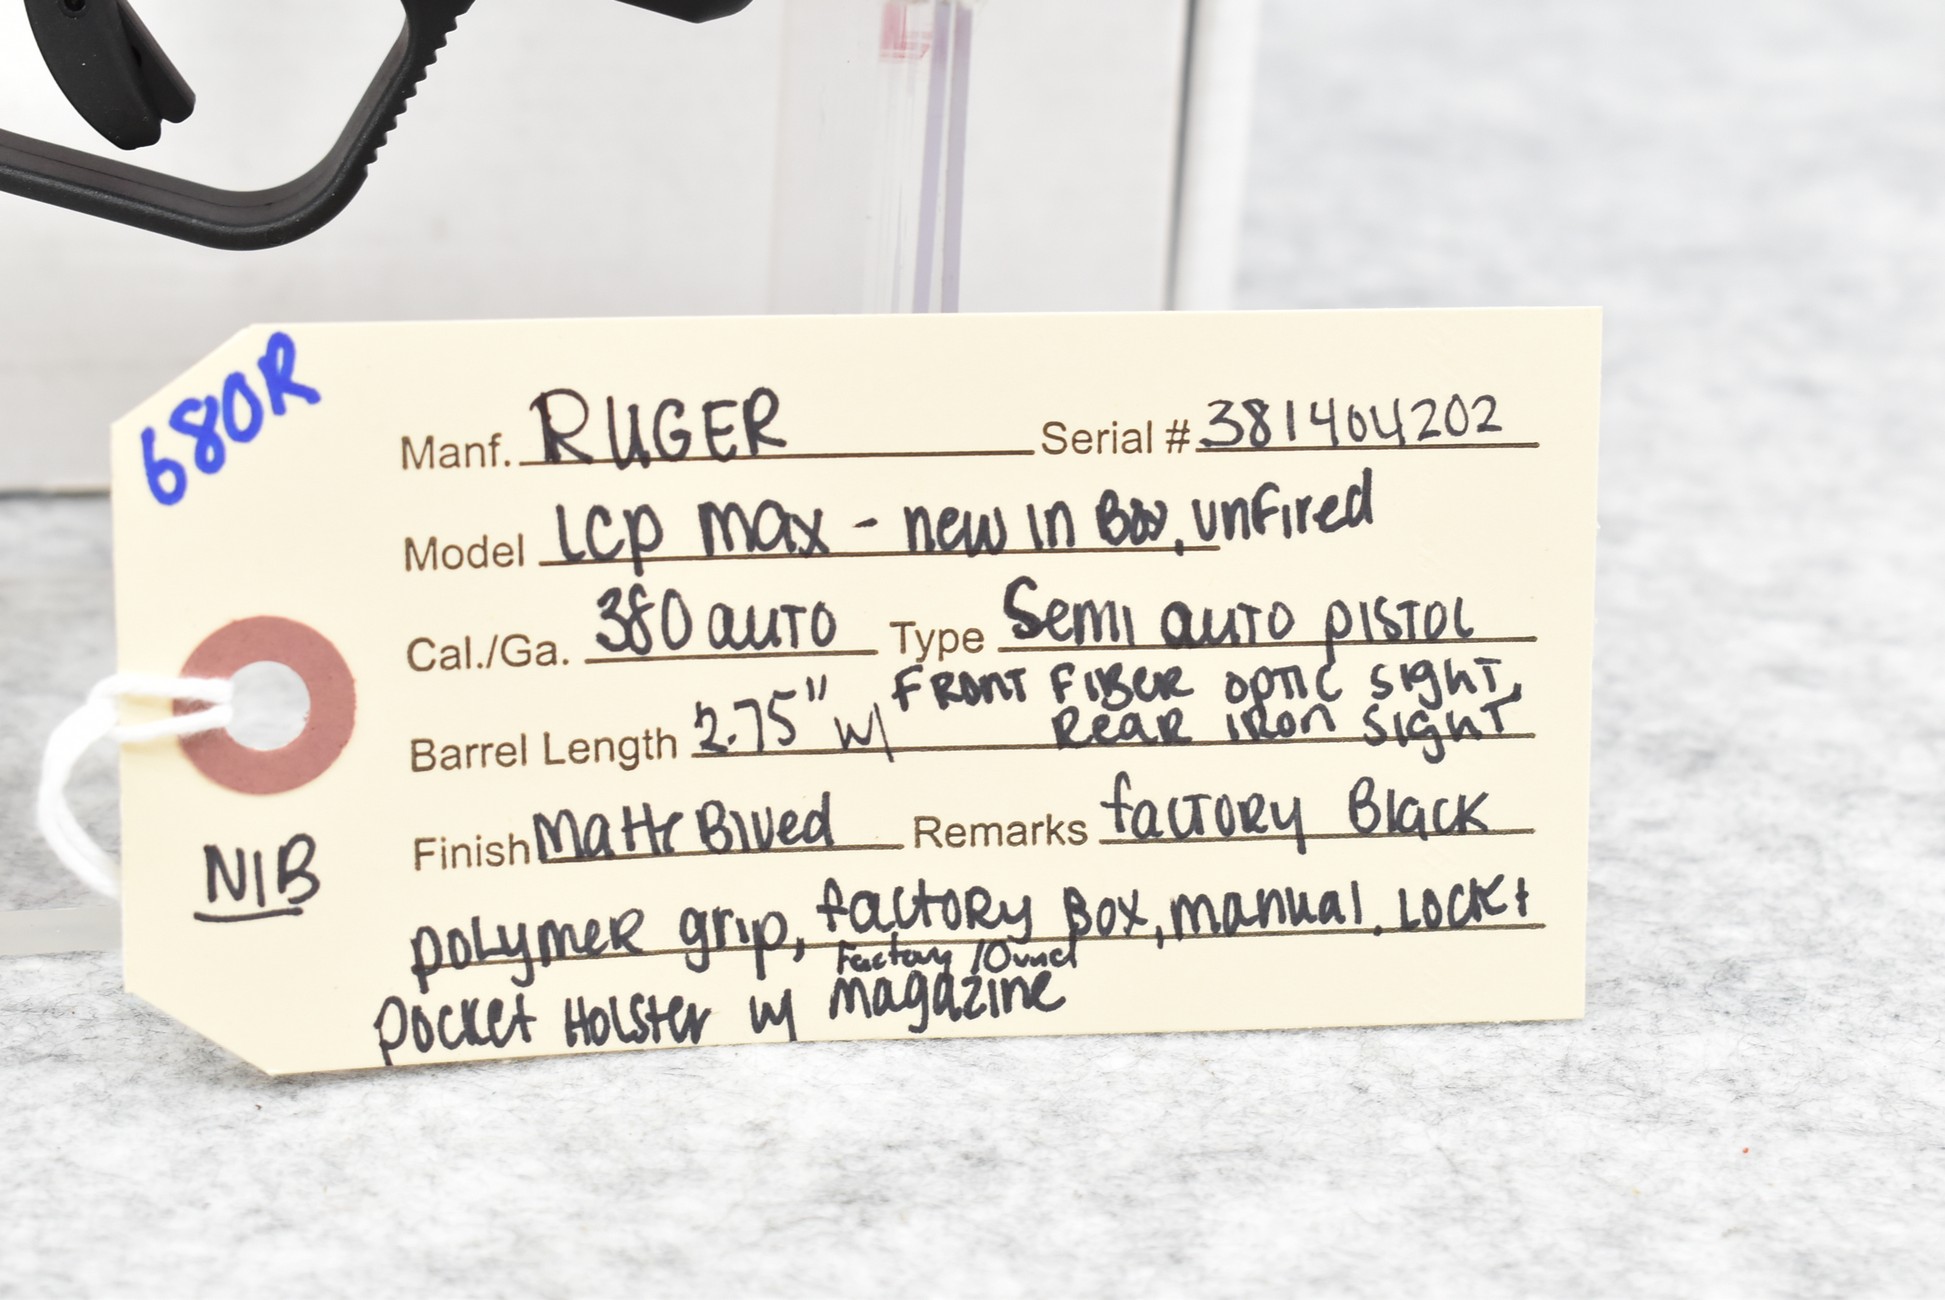 680R
Manf. RUGER Serial # 381404202
Model LCP MAX - new in Box, unfired
Cal./Ga. 380 auto Type Semi auto pistol
Front fiber optic sight,
Barrel Length 2.75" w/ Rear iron sight
Finish Matte Blued Remarks factory Black
NIB
polymer grip, factory Box, manual, Lock +
Factory 10 round
pocket Holster w/ magazine